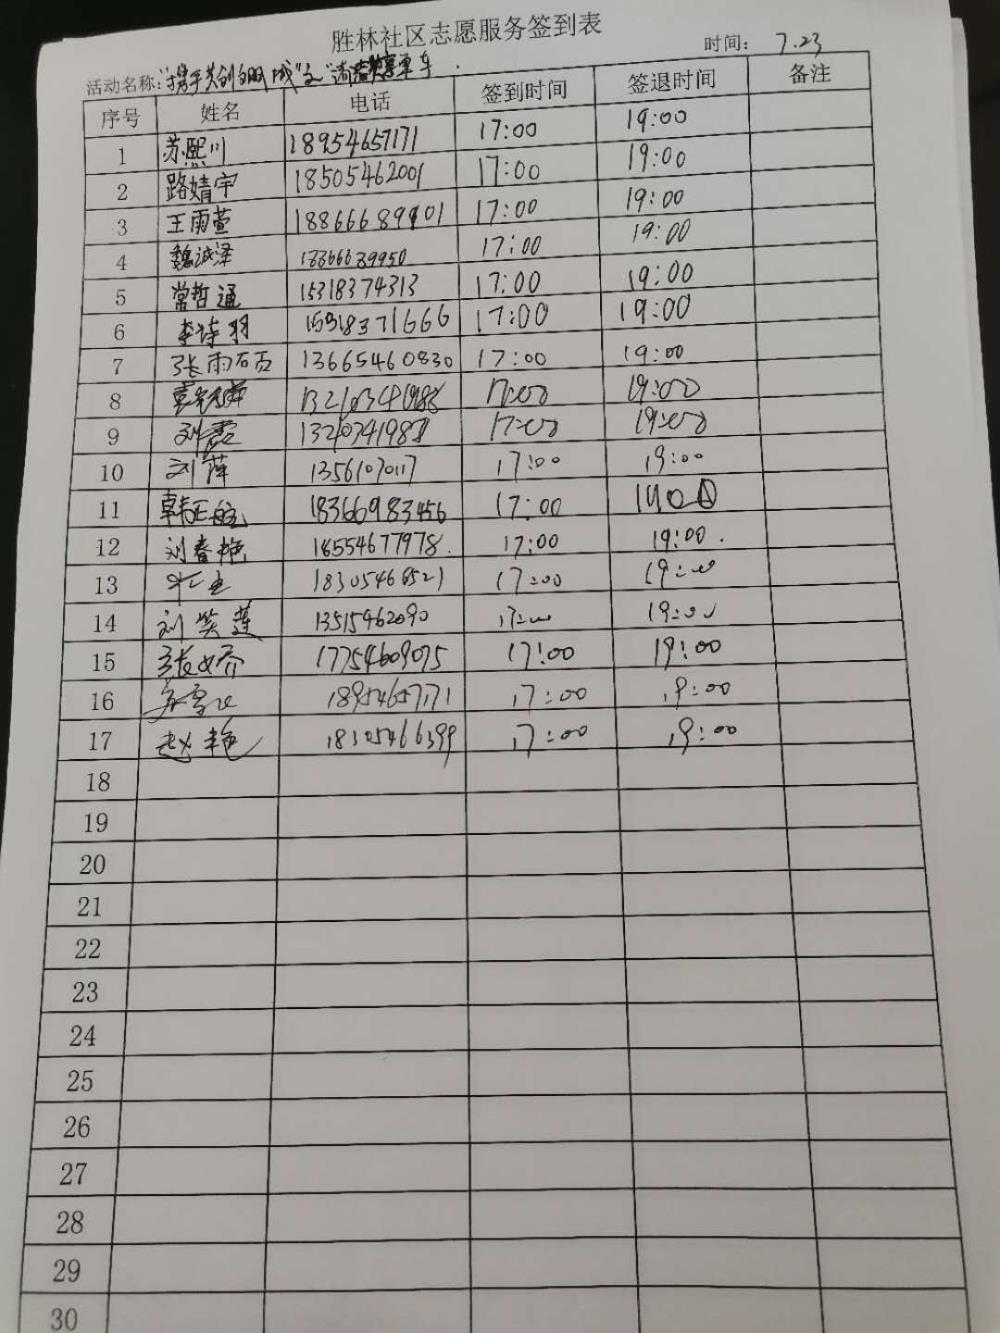 胜林社区志愿服务签到表
时间: 7.23
活动名称:"携手共创文明城"之"清洁共享单车
序号 姓名 电话 签到时间 签退时间 备注
1 苏熙川 18954657171 17:00 19:00
2 路婧宇 18505462001 17:00 19:00
3 王雨萱 17:00 19:00
4 魏诚泽 18366639950 17:00 19:00
5 常哲通 15318374313 17:00 19:00
6 李诗羽 15318371666 17:00 19:00
7 张雨 13665460830 17:00 19:00
8 17:00 19:00
9 刘霞 17:00 19:00
10 刘萍 17:00 19:00
11 韩正航 18366983456 17:00
12 刘春艳 18554677978. 17:00 19:00.
13 18305466521 17:00 19:00
14 刘笑莲 13515462090 17:00 19:00
15 17754609075 17:00 19:00
16 18954657171 17:00 19:00
17 赵艳 18305466399 17:00 19:00
18
19
20
21
22
23
24
25
26
27
28
29
30